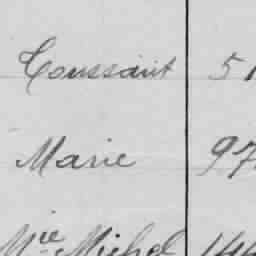 Toussaint 51
Marie 97
Mie Michel 144